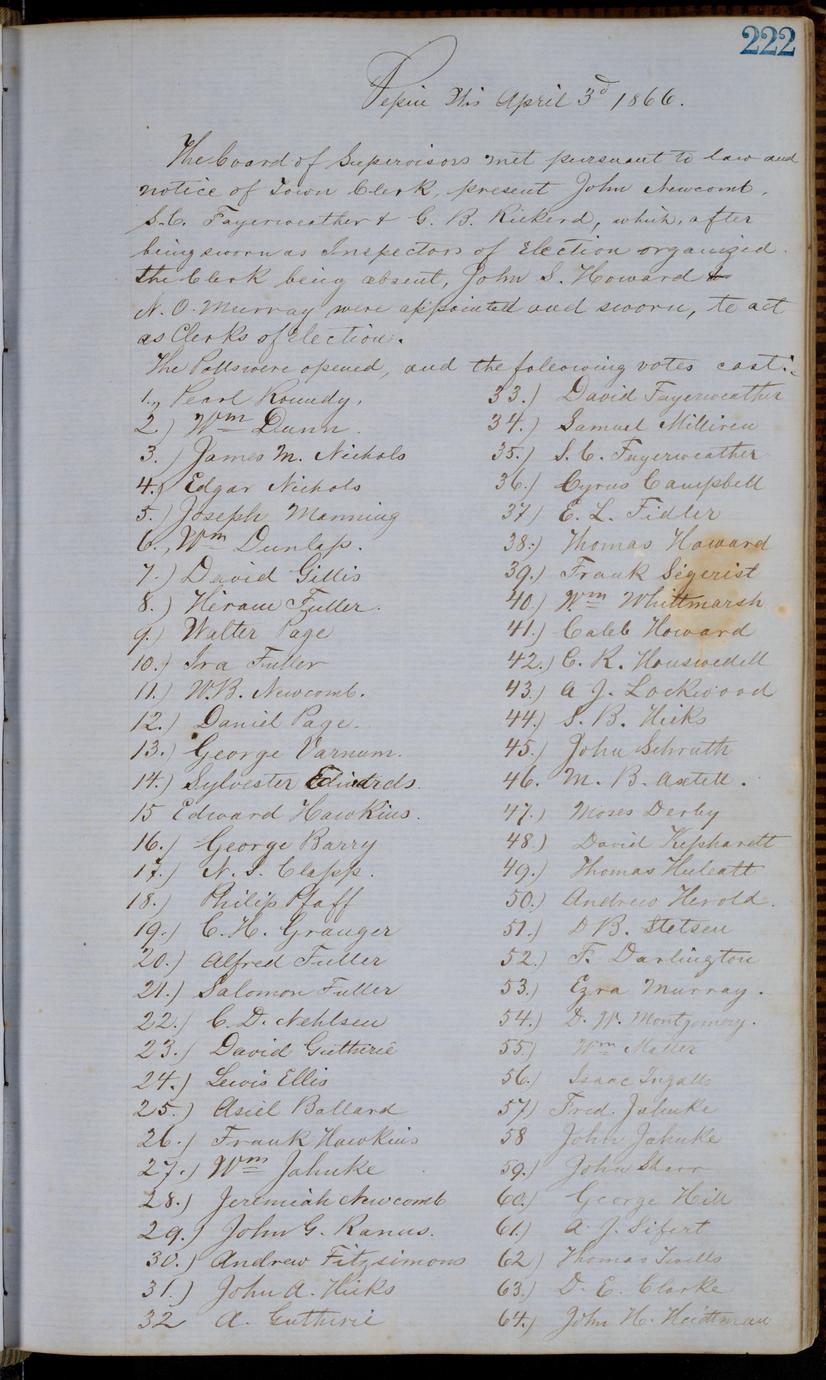 222
Pepin Wis April 3d 1866.
The board of Supervisors met pursuant to law and
notice of Town Clerk, present John Newcomb,
S.C. Fayerweather & C. B. Rickerd, which, after
being sworn as Inspectors of Election organized.
the Clerk being absent, John S. Howard &
N. O. Murray were appointed and sworn, to act
as Clerks of Election.
The Polls were opened, and the following votes cast:
1., Pearl Roundy,
2) Wm Dunn.
3.) James M. Nichols
4.) Edgar Nichols
5.) Joseph Manning
6., Wm Dunlap.
7.) David Gillis
8.) Hiram Fuller.
9.) Walter Page
10.) Ira Fuller
11.) W.B. Newcomb.
12.) Daniel Page.
13.) George Varnum.
14.) Sylvester Edwards.
15 Edward Hawkins.
16.) George Barry
17.) N. S. Clapp.
18.) Philip Pfaff
19.) C. H. Granger
20.) Alfred Fuller
21.) Salomon Fuller
22.) C. D. Nehlsen
23.) David Guthrie
24.) Lewis Ellis
25.) Asiel Ballard
26.) Frank Hawkins
27.) Wm Jahnke
28.) Jeremiah Newcomb
29.) John G. Ranus.
30.) Andrew Fitzsimons
31.) John A. Hicks
32 A. Guthrie
33.) David Fayerweather
34.) Samuel Milliren
35.) S. C. Fayerweather
36.) Cyrus Campbell
37) E. L. Fidler
38.) Thomas Howard
39.) Frank Segerist
40.) Wm Whittmarsh
41.) Caleb Howard
42.) C. R.
43.) A J. Lockwood
44.) S. B. Hicks
45.) John Schruth
46. M. B. Axtell.
47.) Moses Derby
48.) David Kephardt
49.) Thomas Huleatt
50.) Andrew Herold.
51.) D B. Stetsen
52.) F. Darlington
53.) Ezra Murray.
54.) D. W. Montgomery.
55.) Wm
56.) Isaac Ingalls
57) Fred. Jahnke
58 John Jahnke
59.) John
60.) George Hill
61.) A. J. Sifert
62) Thomas
63.) D. E. Clarke
64.) John H.